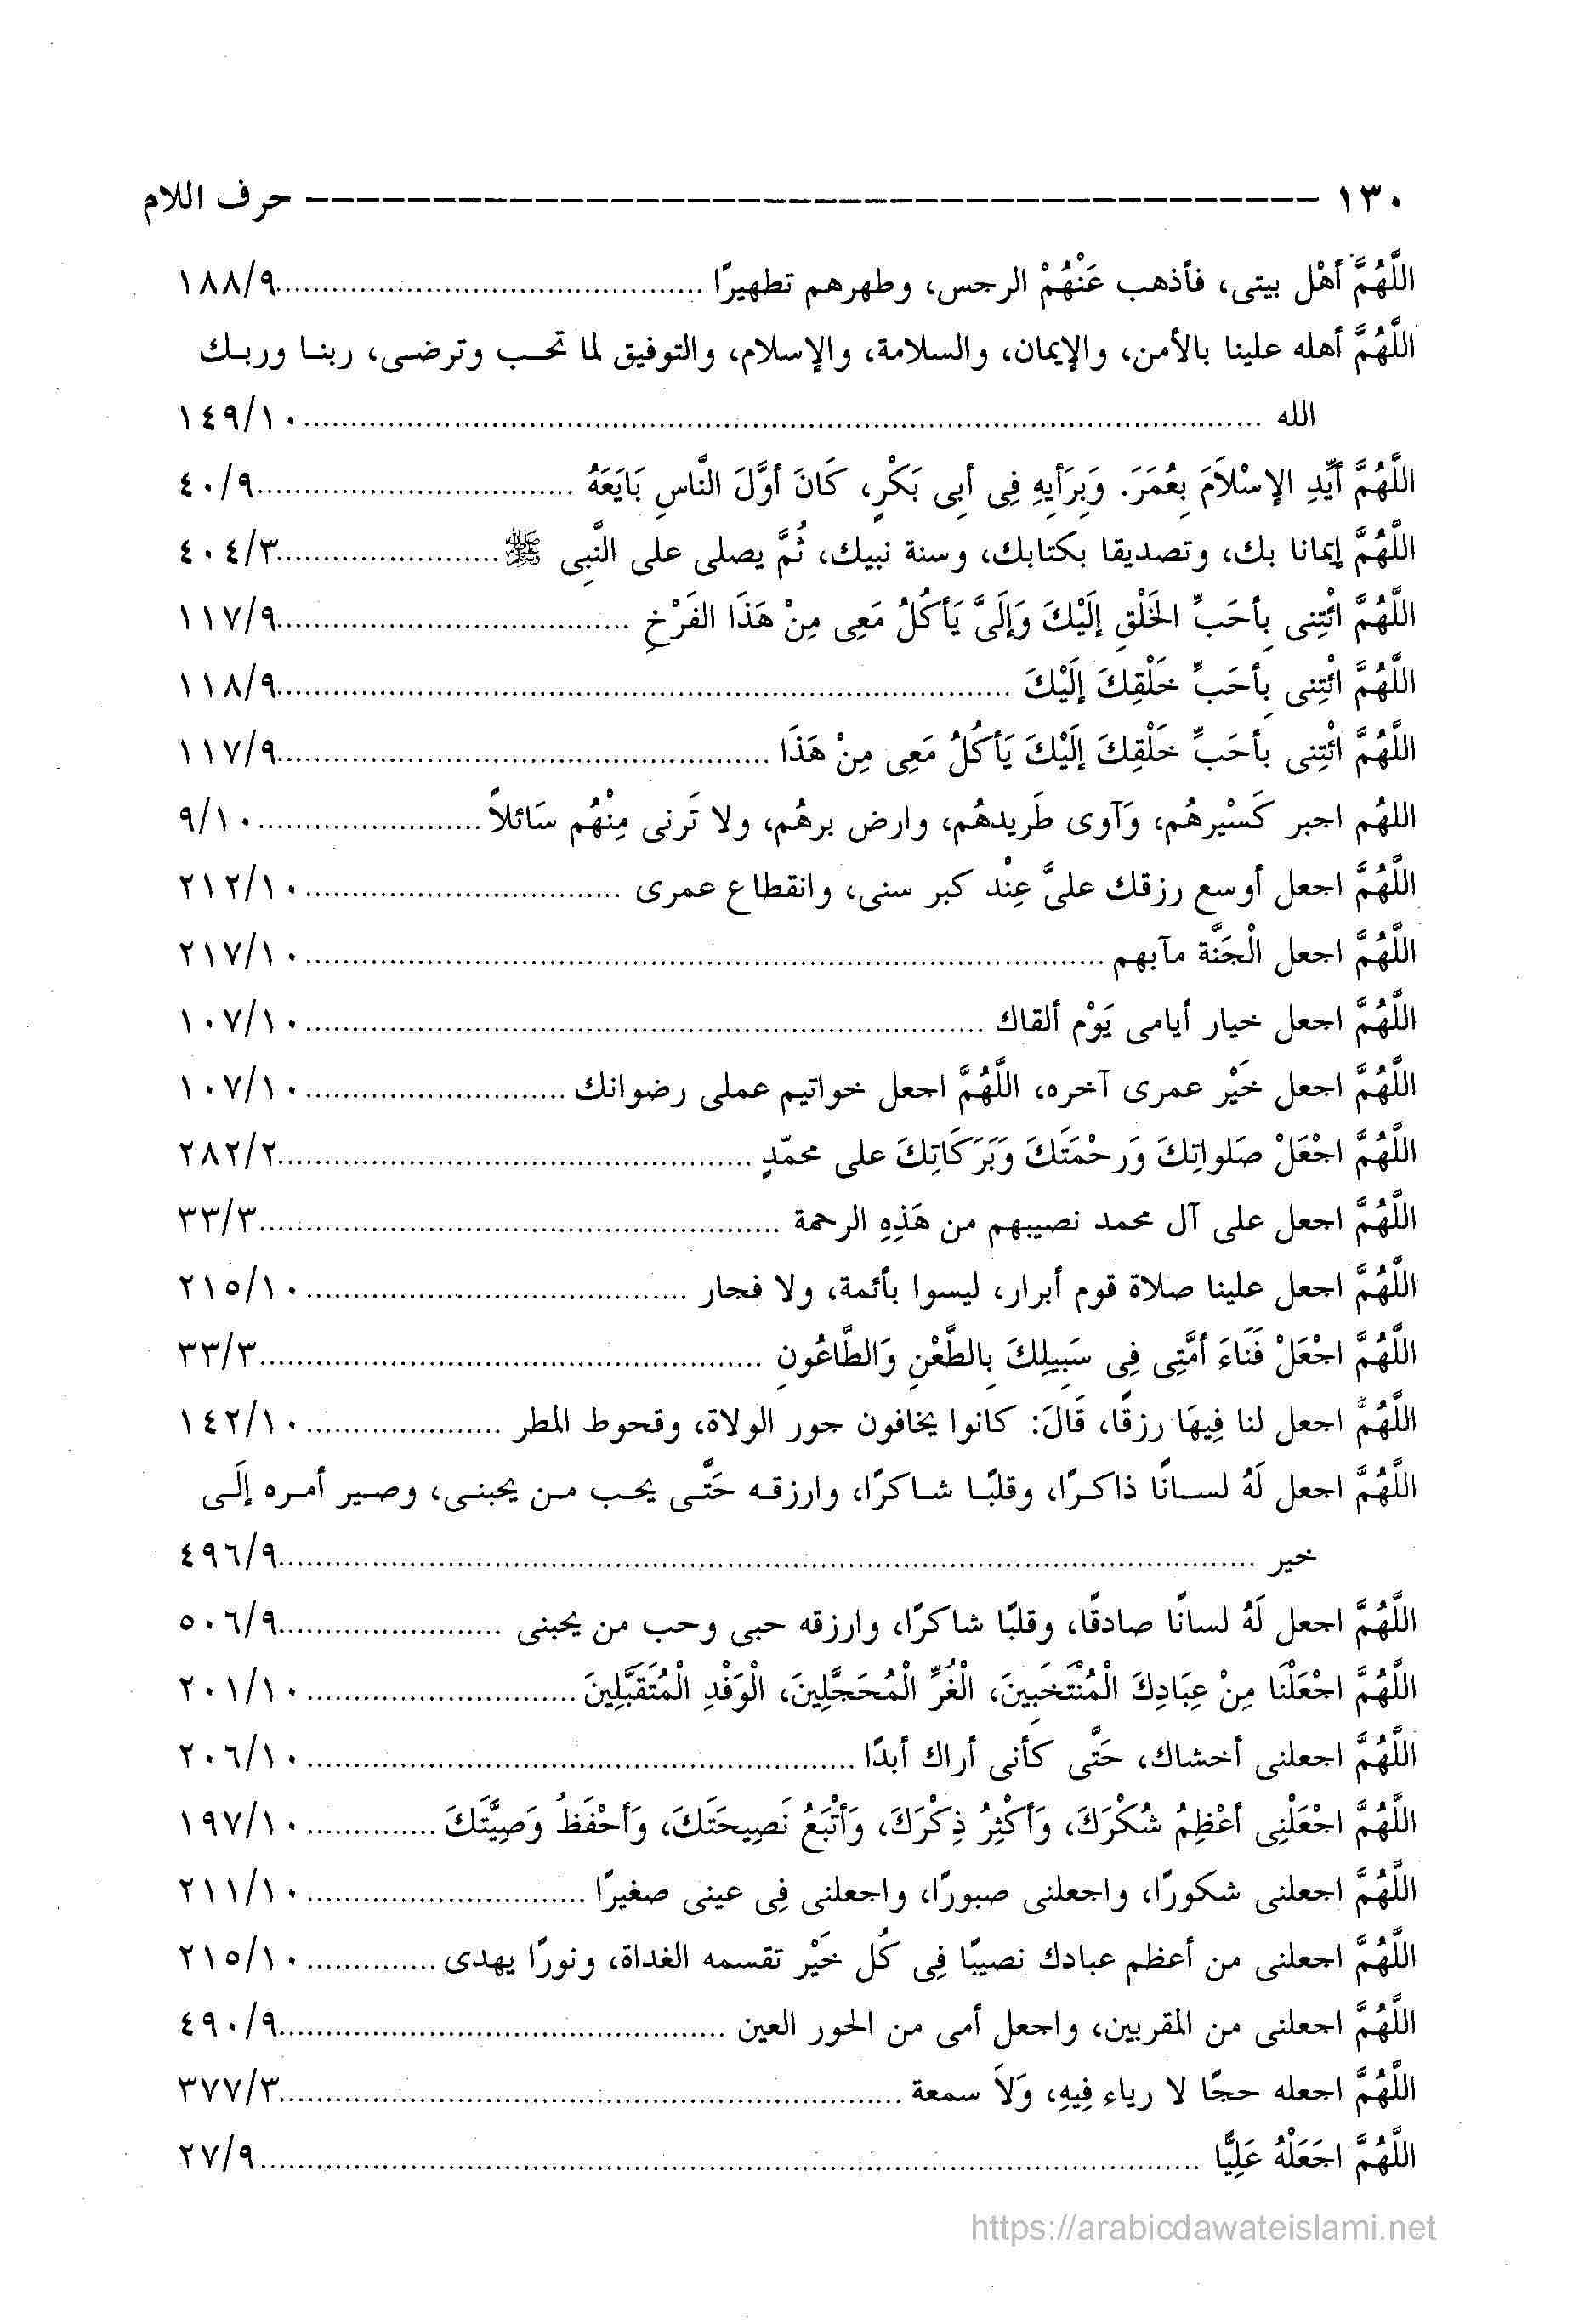 ١٣٠ ---------------------------------------- حرف اللام
اللَّهُمَّ أهْل بيتى، فأذهب عَنْهُمْ الرجس، وطهرهم تطهيرًا ........ ١٨٨/٩
اللَّهُمَّ أهله علينا بالأمن، والإيمان، والسلامة، والإسلام، والتوفيق لما تحب وترضى، ربنا وربك
الله ........ ١٤٩/١٠
اللَّهُمَّ أيِّدِ الإسْلاَمَ بِعُمَرَ. وَبِرَأيِهِ فِى أبِى بَكْرٍ، كَانَ أوَّلَ النَّاسِ بَايَعَهُ ........ ٤٠/٩
اللَّهُمَّ إيمانا بك، وتصديقا بكتابك، وسنة نبيك، ثُمَّ يصلى على النَّبِى ﷺ ........ ٤٠٤/٣
اللَّهُمَّ ائْتِنى بِأحَبِّ الخَلْقِ إلَيْكَ وَإلَىَّ يَأكُلُ مَعِى مِنْ هَذَا الفَرْخِ ........ ١١٧/٩
اللَّهُمَّ ائْتِنى بِأحَبِّ خَلْقِكَ إلَيْكَ ........ ١١٨/٩
اللَّهُمَّ ائْتِنى بأحَبِّ خَلْقِكَ إلَيْكَ يَأكُلُ مَعِى مِنْ هَذَا ........ ١١٧/٩
اللهُم اجبر كَسْيرهُم، وَآوى طَريدهُم، وارض برهُم، ولا تَرنى مِنْهُم سَائلاً ........ ٩/١٠
اللَّهُمَّ اجعل أوسع رزقك علىَّ عِنْد كبر سنى، وانقطاع عمرى ........ ٢١٢/١٠
اللَّهُمَّ اجعل الْجَنَّة مآبهم ........ ٢١٧/١٠
اللَّهُمَّ اجعل خيار أيامى يَوْم ألقاك ........ ١٠٧/١٠
اللَّهُمَّ اجعل خَيْر عمرى آخره، اللَّهُمَّ اجعل خواتيم عملى رضوانك ........ ١٠٧/١٠
اللَّهُمَّ اجْعَلْ صَلواتِكَ وَرحْمَتَكَ وَبَرَكَاتِكَ على محمّدٍ ........ ٢٨٢/٢
اللَّهُمَّ اجعل على آل محمد نصيبهم من هَذِهِ الرحمة ........ ٣٣/٣
اللَّهُمَّ اجعل علينا صلاة قوم أبرار، ليسوا بأئمة، ولا فجار ........ ٢١٥/١٠
اللَّهُمَّ اجْعَلْ فَنَاءَ أمَّتِى فِى سَبِيلِكَ بِالطَّعْنِ وَالطَّاعُونِ ........ ٣٣/٣
اللَّهُمَّ اجعل لنا فِيهَا رزقًا، قَالَ: كانوا يخافون جور الولاة، وقحوط المطر ........ ١٤٢/١٠
اللَّهُمَّ اجعل لَهُ لسانًا ذاكرًا، وقلبًا شاكرًا، وارزقه حَتَّى يحب من يحبنى، وصير أمره إلَى
خير ........ ٤٩٦/٩
اللَّهُمَّ اجعل لَهُ لسانًا صادقًا، وقلبًا شاكرًا، وارزقه حبى وحب من يحبنى ........ ٥٠٦/٩
اللَّهُمَّ اجْعَلْنَا مِنْ عِبَادِكَ الْمُنْتَخَبِينَ، الْغُرِّ الْمُحَجَّلِينَ، الْوَفْدِ الْمُتَقَبَّلِينَ ........ ٢٠١/١٠
اللَّهُمَّ اجعلنى أخشاك، حَتَّى كَأنى أراك أبدًا ........ ٢٠٦/١٠
اللَّهُمَّ اجْعَلْنِى أعْظِمُ شُكْرَكَ، وَأكْثِرُ ذِكْرَكَ، وَأتْبَعُ نَصِيحَتَكَ، وَأحْفَظُ وَصِيَّتَكَ ........ ١٩٧/١٠
اللَّهُمَّ اجعلنى شكورًا، واجعلنى صبورًا، واجعلنى فِى عينى صغيرًا ........ ٢١١/١٠
اللَّهُمَّ اجعلنى من أعظم عبادك نصيبًا فِى كُل خَيْر تقسمه الغداة، ونورًا يهدى ........ ٢١٥/١٠
اللَّهُمَّ اجعلنى من المقربين، واجعل أمى من الحور العين ........ ٤٩٠/٩
اللَّهُمَّ اجعله حجًا لا رياء فِيهِ، وَلاَ سمعة ........ ٣٧٧/٣
اللَّهُمَّ اجَعَلْهُ عَلِيًّا ........ ٢٧/٩
https://arabicdawateislami.net